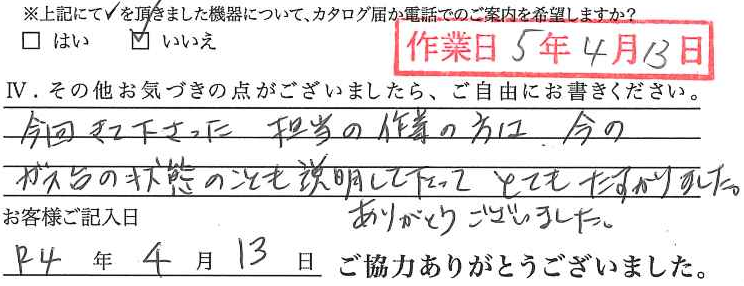 ※上記にて✓を頂きました機器について、カタログ届か電話でのご案内を希望しますか?
□ はい ☑ いいえ
作業日 5年4月13日
Ⅳ．その他お気づきの点がございましたら、ご自由にお書きください。
今回きて下さった 担当の作業の方は 今の
ガス台の状態のことも説明して下さって とてもたすかりました。
ありがとうございました。
お客様ご記入日
R4 年 4 月 13 日 ご協力ありがとうございました。